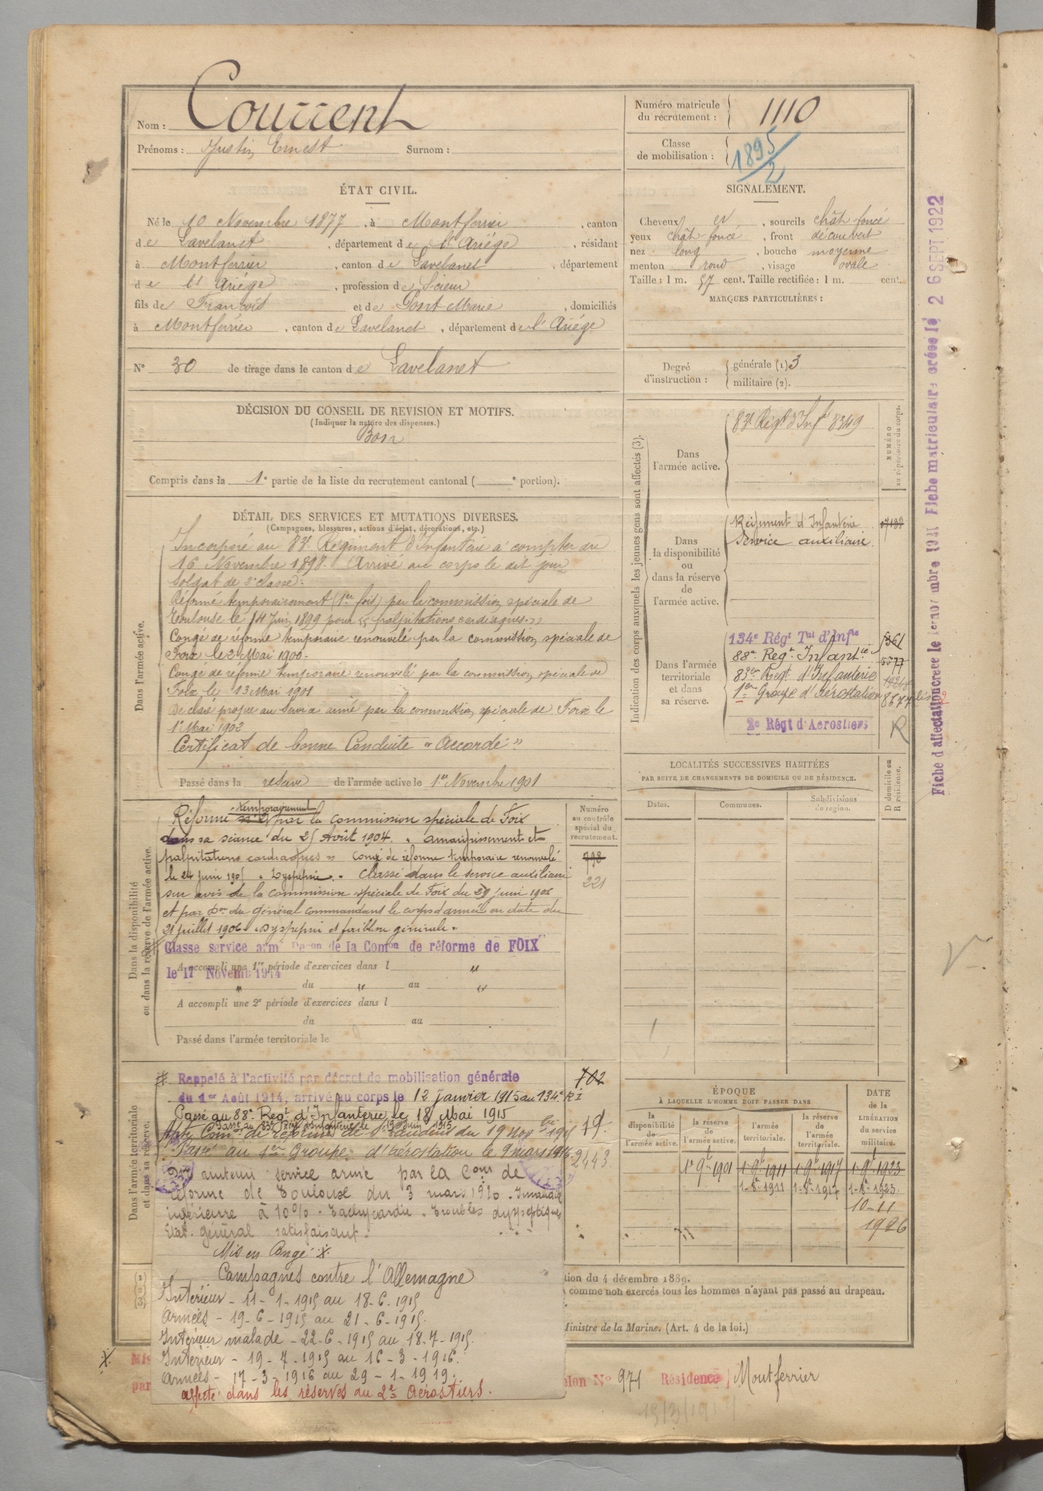 Nom : Courrent
Prénoms : Justin Ernest Surnom :
Numéro matricule du recrutement : 1110
Classe de mobilisation : 1895/2
ÉTAT CIVIL.
Né le 10 Novembre 1877, à Montferrier, canton
de Lavelanet, département de l'Ariège, résidant
à Montferrier, canton de Lavelanet, département
de l'Ariège, profession de Scieur
fils de François et de Pont Marie, domiciliés
à Montferrier, canton de Lavelanet, département de l'Ariège
N° 30 de tirage dans le canton de Lavelanet
SIGNALEMENT.
Cheveux et, sourcils chât foncé
yeux chât foncé, front découvert
nez long, bouche moyenne
menton rond, visage ovale
Taille : 1 m. 57 cent. Taille rectifiée : 1 m. cent.
MARQUES PARTICULIÈRES :
Degré d'instruction : générale (1) 3
militaire (2).
DÉCISION DU CONSEIL DE REVISION ET MOTIFS.
(Indiquer la nature des dispenses.)
Bon
Compris dans la 1e partie de la liste du recrutement cantonal ( e portion).
DÉTAIL DES SERVICES ET MUTATIONS DIVERSES.
(Campagnes, blessures, actions d'éclat, décorations, etc.)
Dans l'armée active.
Incorporé au 83e Régiment d'Infanterie à compter du
16 Novembre 1898. Arrivé au corps le dit jour
soldat de 2e classe.
Réformé temporairement (1re fois) par la commission spéciale de
Toulouse le Juin 1899 pour "palpitations cardiaques"
Congé de réforme temporaire renouvelé par la commission spéciale de
Foix le 2 Mai 1900.
Congé de réforme temporaire renouvelé par la commission spéciale de
Foix le 13 Mai 1901
Déclaré propre au service armé par la commission spéciale de Foix le
1er Mai 1902
Certificat de bonne Conduite "Accordé"
Passé dans la réserve de l'armée active le 1er Novembre 1901
Dans la disponibilité ou dans la réserve de l'armée active.
Réformé temporairement par la Commission spéciale de Foix
dans sa séance du 25 Août 1904. "amaigrissement et
palpitations cardiaques" Congé de réforme temporaire renouvelé
le 24 juin 1905 "Dyspepsie". Classé dans le service auxiliaire
sur avis de la commission spéciale de Foix du 29 juin 1906
et par Don du Général commandant le corps d'armée en date du
21 juillet 1906 "dyspepsie et faiblesse générale".
Classé service armé Décon de la Comon de réforme de FOIX
le 17 Novemb 1914
A accompli une 1re période d'exercices dans l "
" du " au "
A accompli une 2e période d'exercices dans l
du au
Passé dans l'armée territoriale le
Numéro au contrôle spécial du recrutement.
998
221
Indication des corps auxquels les jeunes gens sont affectés (3).
Dans l'armée active.
83e Régt d'Inf 8349
NUMÉRO au répertoire du corps.
Dans la disponibilité ou dans la réserve de l'armée active.
Régiment d'Infanterie
Service auxiliaire
Dans l'armée territoriale et dans sa réserve.
134e Régt Tal d'Infie
88e Regt. Infantie
83e Regt d'Infanterie
1er Groupe d'aérostation
2e Régt d'Aerostiers
R
LOCALITÉS SUCCESSIVES HABITÉES
PAR SUITE DE CHANGEMENTS DE DOMICILE OU DE RÉSIDENCE.
Dates. Communes. Subdivisions de région. D domicile ou R résidence.
Dans l'armée territoriale et dans sa réserve.
Rappelé à l'activité par décret de mobilisation générale
du 1er Août 1914, arrivé au corps le 12 janvier 1915 au 134e R I
Passé au 88e Regt d'Infanterie le 18 Mai 1915
Passé au 1er Groupe d'aérostation le 9 mars 1916
Maintenu service armé par la Com de
réforme de Toulouse du 3 mars 1920. Invalidité
inférieure à 10% - Tachycardie. Troubles dyspeptiques
Etat général satisfaisant.
Mis en Congé
Campagnes contre l'Allemagne
Intérieur - 11-1-1915 au 18-6-1915
Armées - 19-6-1915 au 21-6-1915.
Intérieur malade - 22-6-1915 au 18-7-1915.
Intérieur - 19-7-1915 au 16-3-1916.
Armées - 17-3-1916 au 29-1-1919.
affecté dans les réserves au 2e Aérostiers.
702
19.
2443
ÉPOQUE
À LAQUELLE L'HOMME DOIT PASSER DANS
la disponibilité de l'armée active. la réserve de l'armée active. l'armée territoriale. la réserve de l'armée territoriale.
DATE de la LIBÉRATION du service militaire.
1er 9b 1901 1er 9b 1911 1er 9b 1917 1er 9b 1923
10-11
1926
tion du 4 décembre 1889.
comme non exercés tous les hommes n'ayant pas passé au drapeau.
Ministre de la Marine. (Art. 4 de la loi.)
N° 971 Résidence Montferrier
Fiche matriculaire créée le 26 SEPT 1922